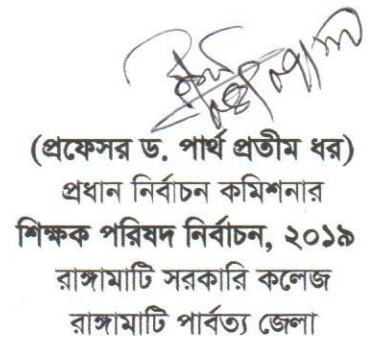 (প্রফেসর ড. পার্থ প্রতীম ধর)
প্রধান নির্বাচন কমিশনার
শিক্ষক পরিষদ নির্বাচন, ২০১৯
রাঙ্গামাটি সরকারি কলেজ
রাঙ্গামাটি পার্বত্য জেলা